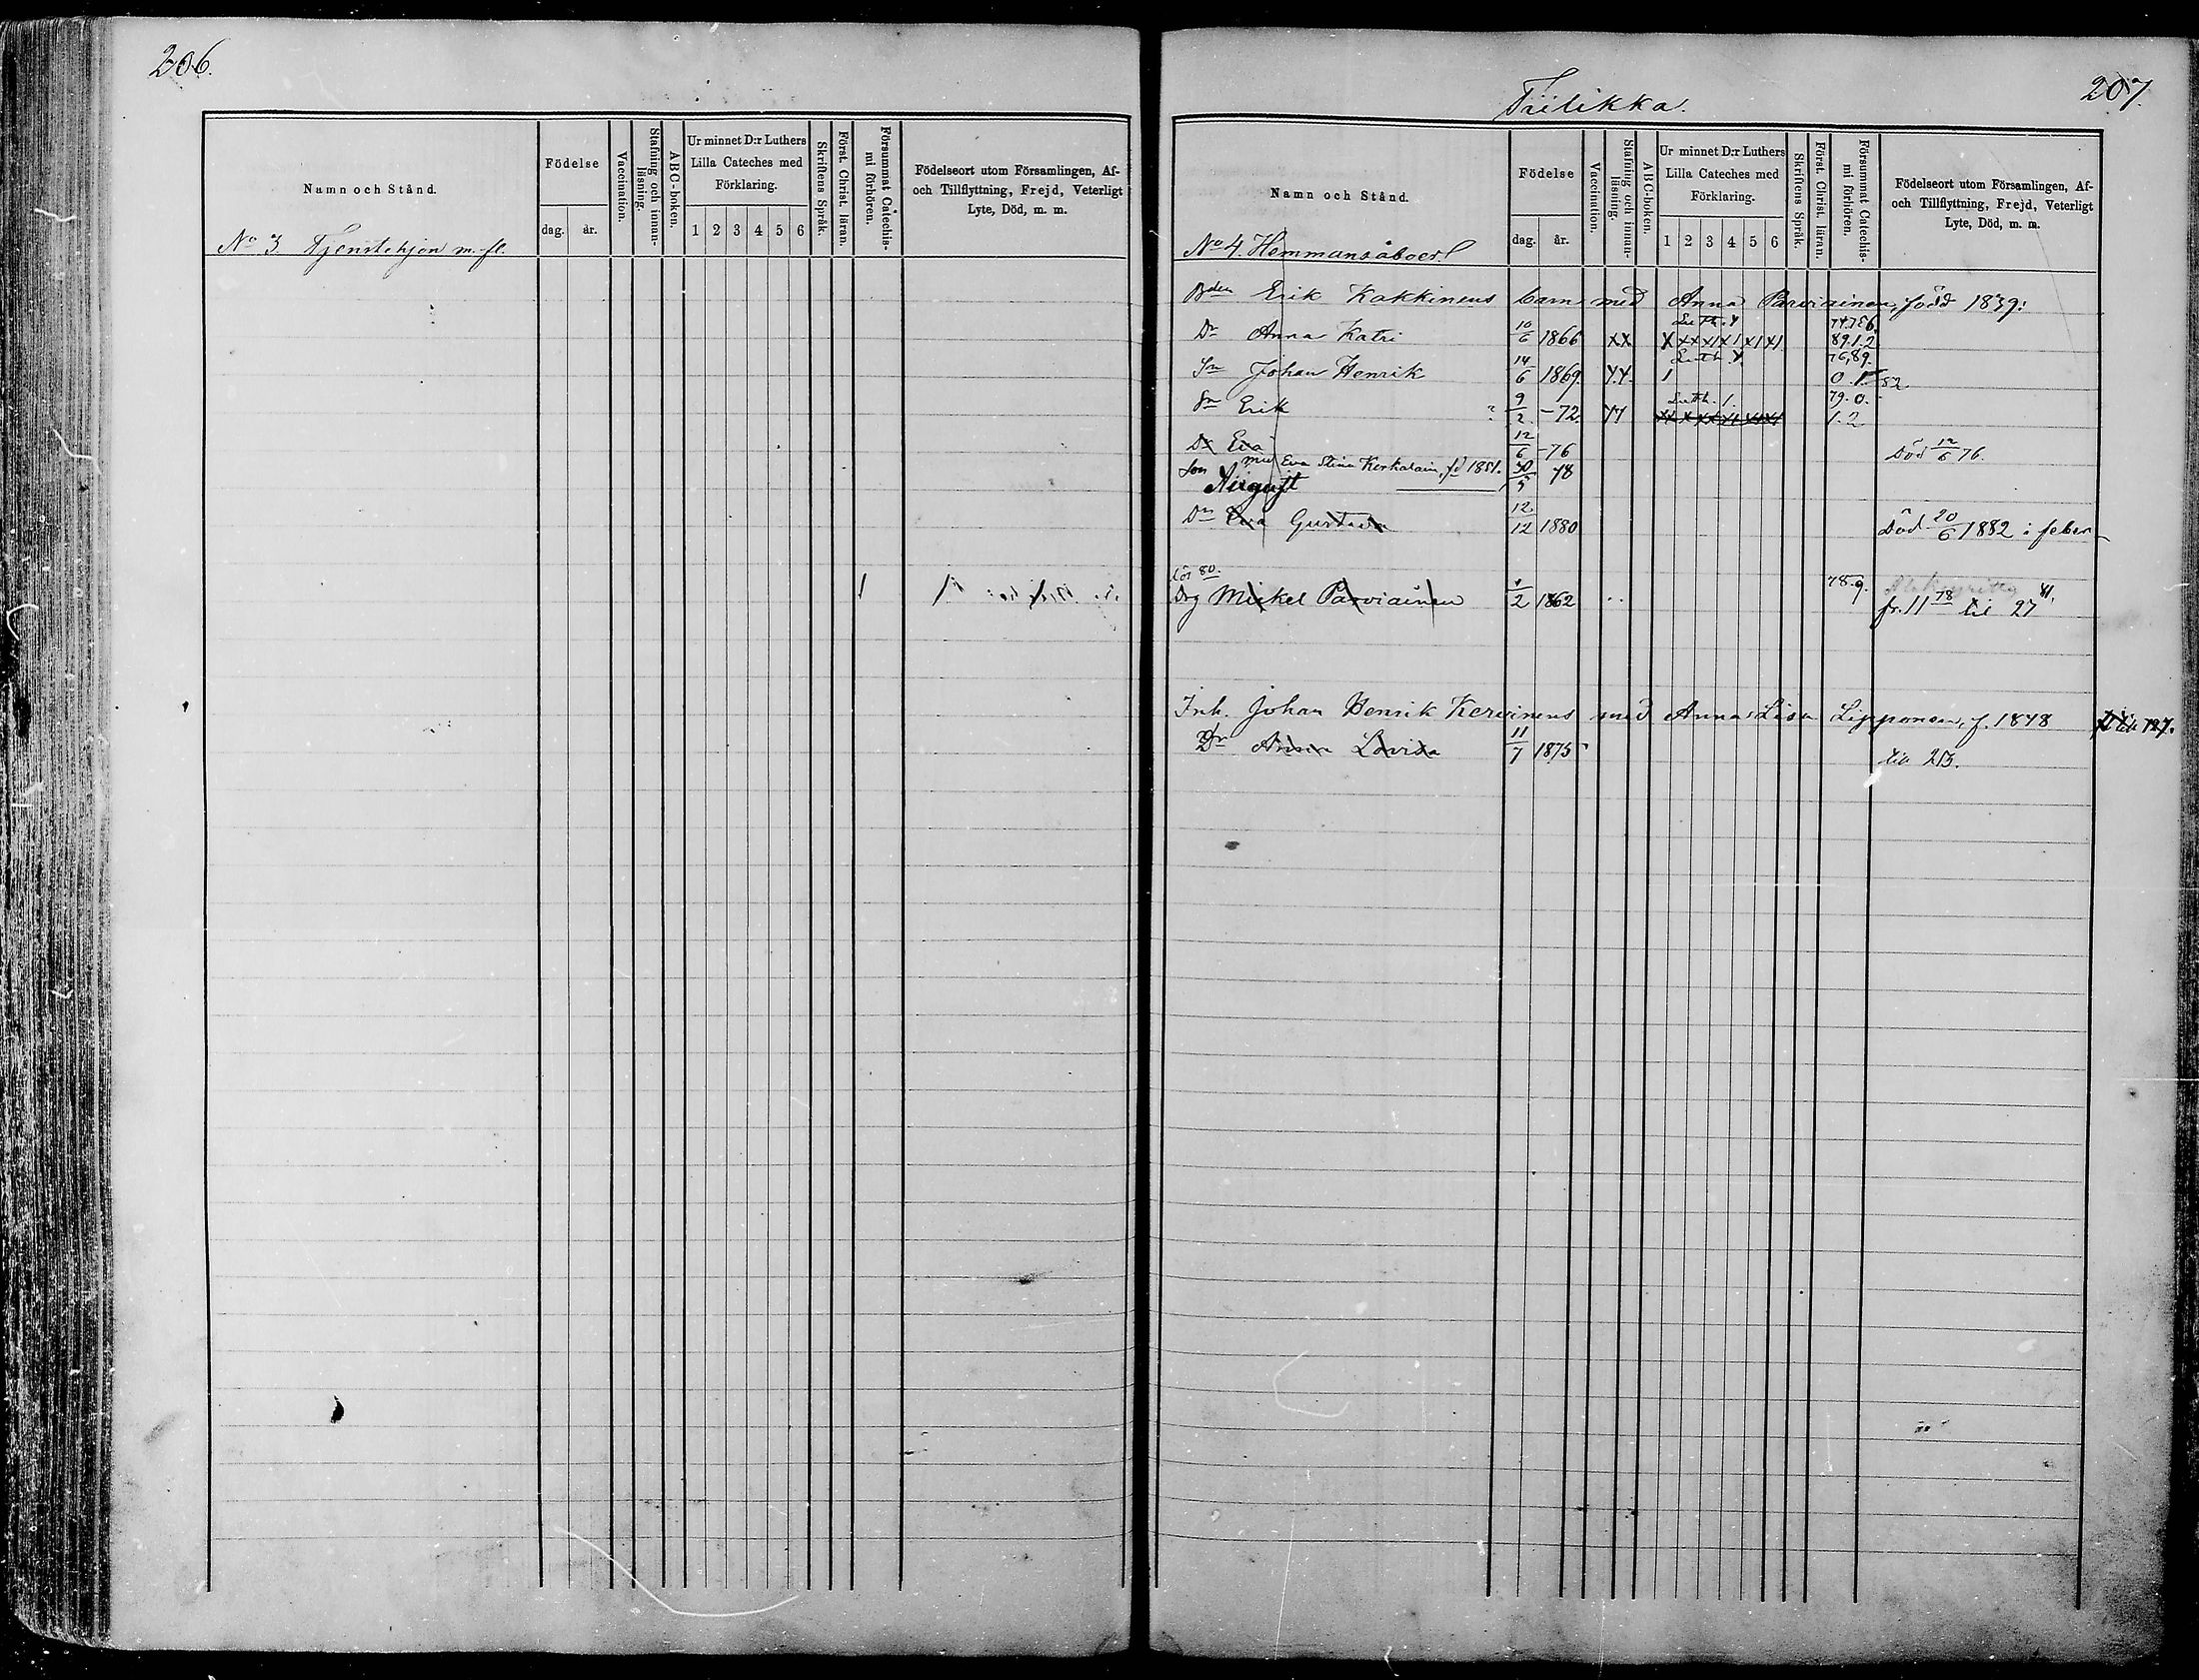 206.
Namn och Stånd.
Födelse
dag.
år.
Vaccination.
Stafning och innan-
läsning.
ABC-boken.
Ur minnet D:r Luthers
Lilla Cateches med
Förklaring.
1 2 3 4 5 6
Skriftens Språk.
Först. Christ. läran.
Försummat Catechis-
mi förhören.
Födelseort utom Församlingen, Af-
och Tillflyttning, Frejd, Veterligt
Lyte, Död, m. m.
No 3 Tjenstehjon m. fl.
207.
Tiilikka.
Namn och Stånd.
Födelse
dag.
år.
Vaccination.
Stafning och innan-
läsning.
ABC-boken.
Ur minnet D:r Luthers
Lilla Cateches med
Förklaring.
1 2 3 4 5 6
Skriftens Språk.
Först. Christ. läran.
Försummat Catechis-
mi förhören.
Födelseort utom Församlingen, Af-
och Tillflyttning, Frejd, Veterligt
Lyte, Död, m. m.
No 4. Hemmansåboer
Bden Erik Kakkinens barn med Anna Parviainen, född 1839:
Dr Anna Katri 10/6 1866 XX Luth. 89.1.2
Sn Johan Henrik 14/6 1869 Luth. 76,89. 0.1. 82.
Sn Erik 9/2 -72 Luth. 1. 79.0. 1.2.
Dr Eva 12/6 -76 Död 12/6 76.
med Eva Stina Kerkalain, fd 1851.
Son August 30/5 78
Dr Eva Gustava 12/12 1880 Död 20/6 1882 i feber
Drg Mickel Parviainen 1/2 1862 78.9. fr. 11 78 til 27 81.
Inh. Johan Henrik Kervinens med Anna Lisa Lipponen, f. 1848
Dr Anna Lovisa 11/7 1875 til 213.